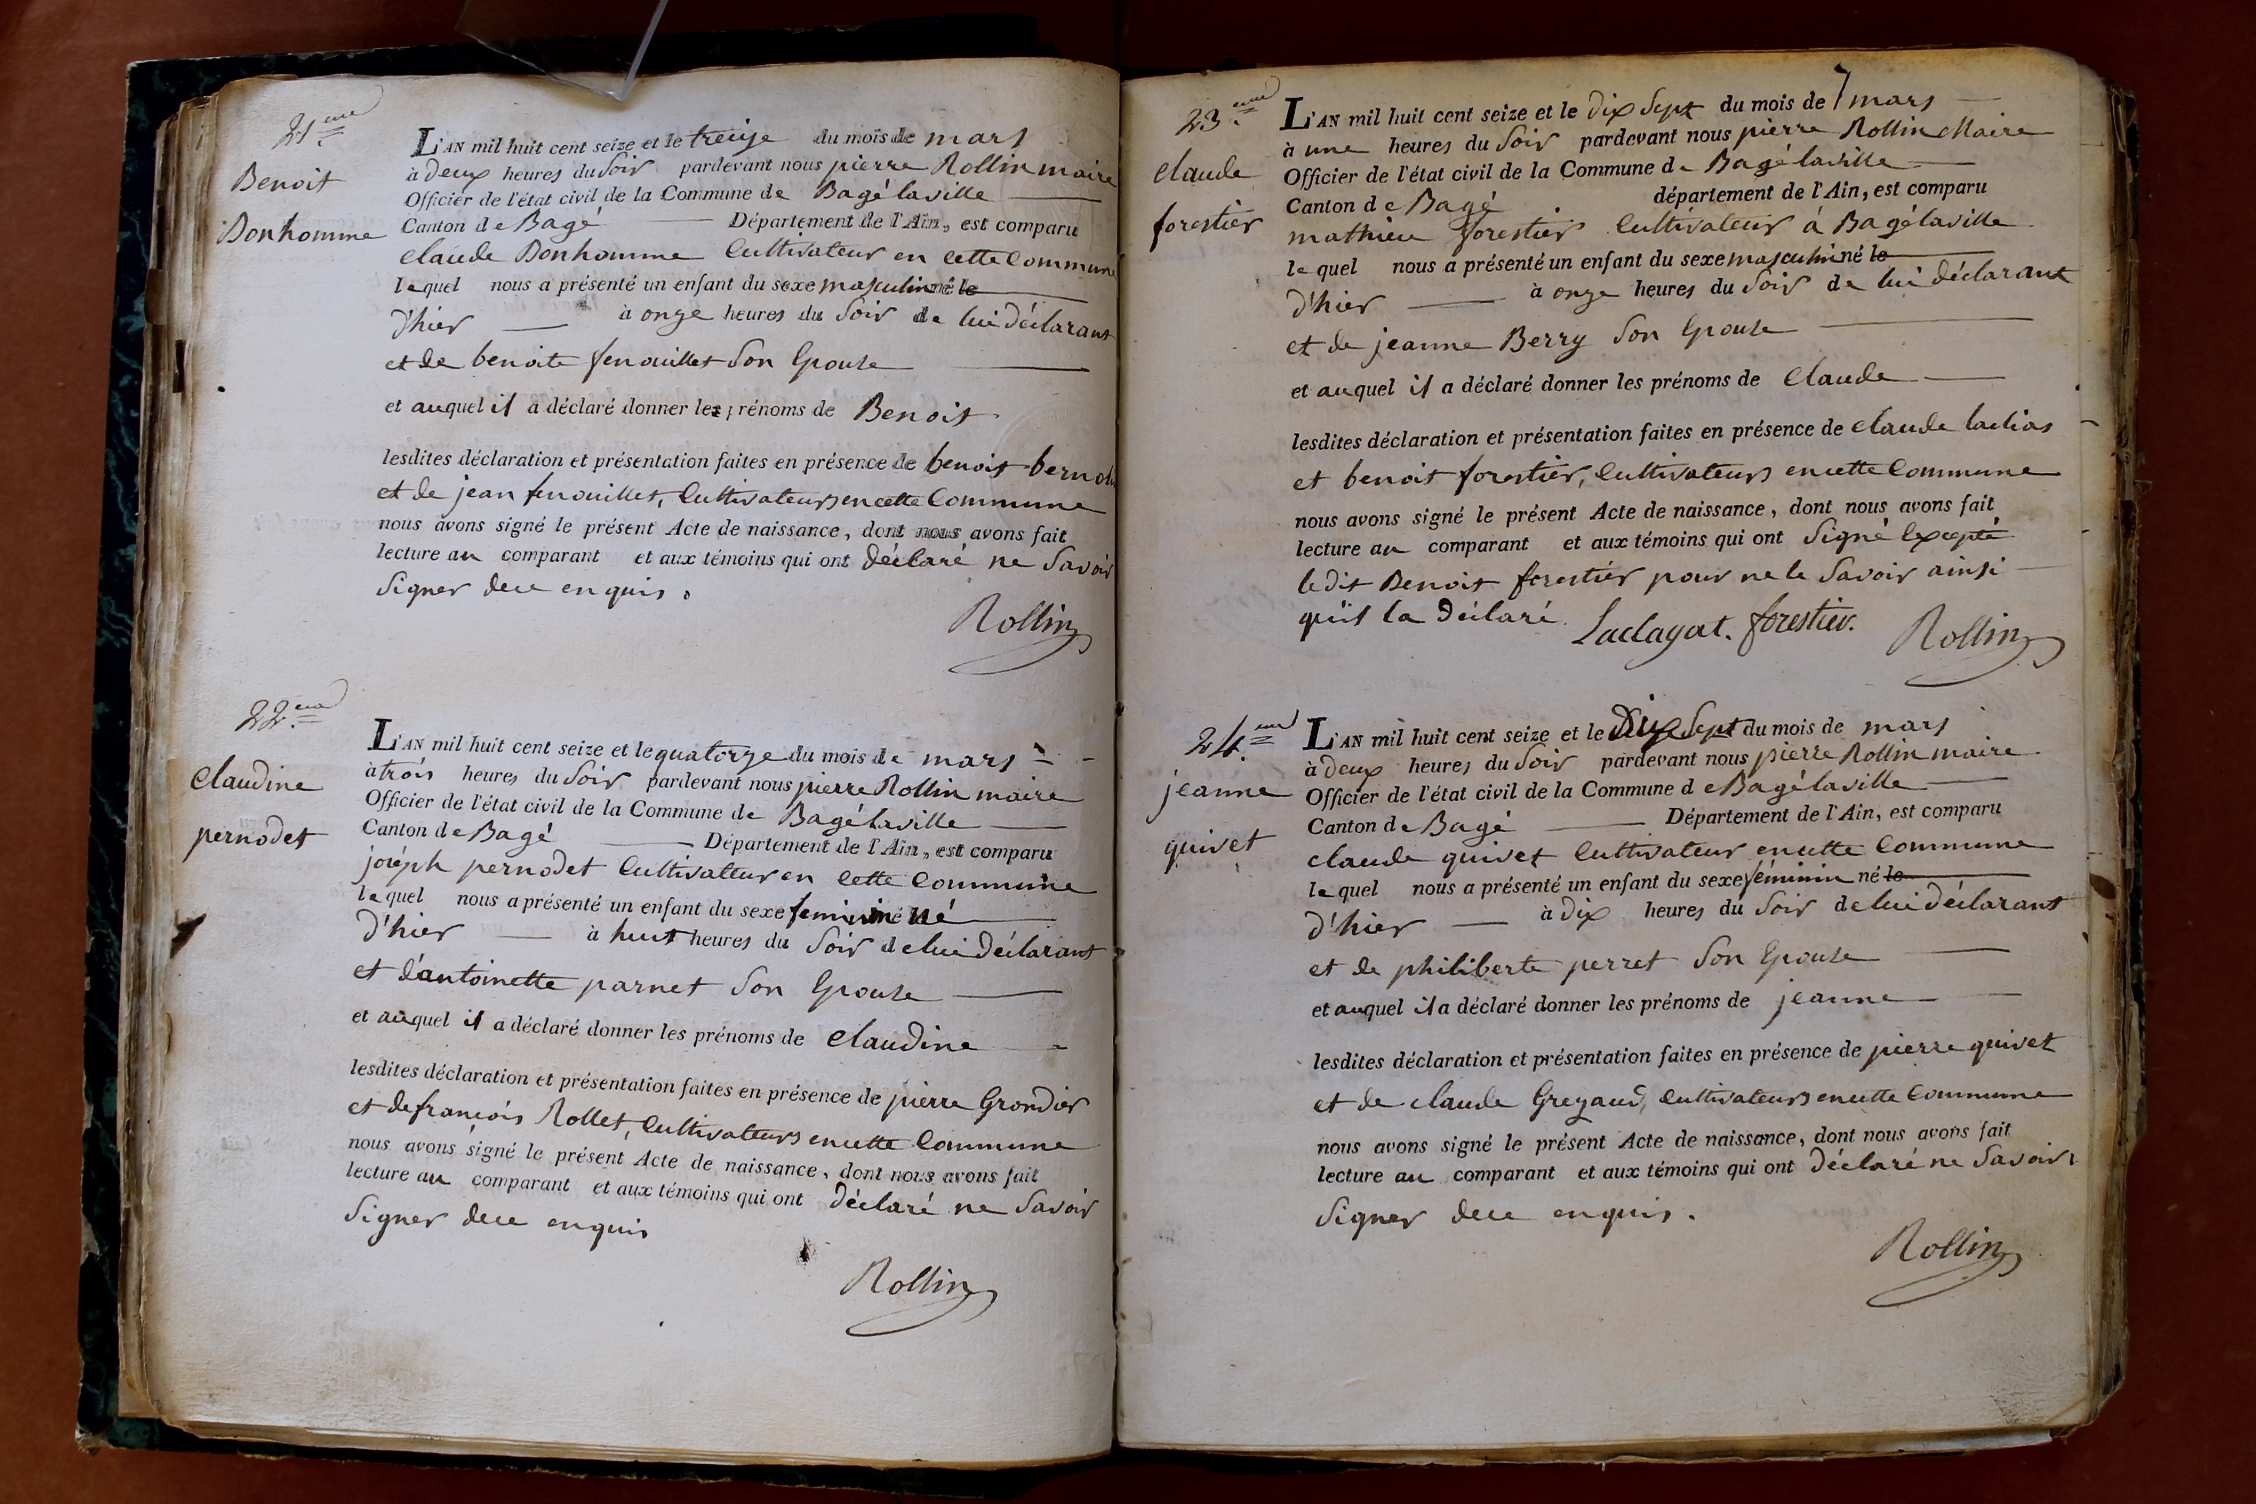 21.eme
Benoit
Bonhomme
L'AN mil huit cent seize et le treize du mois de mars
à deux heures du Soir pardevant nous pierre Rollin maire
Officier de l'état civil de la Commune de Bagé laville
Canton de Bagé Département de l'Ain, est comparu
claude Bonhomme Cultivateur en cette Commune
lequel nous a présenté un enfant du sexe masculin né le
d'hier à onze heures du Soir de lui déclarant
et de benoite fenouillet Son Epouse
et auquel il a déclaré donner les prénoms de Benoit
lesdites déclaration et présentation faites en présence de benoit
et de jean fenouillet, Cultivateurs en cette Commune
nous avons signé le présent Acte de naissance, dont nous avons fait
lecture au comparant et aux témoins qui ont déclaré ne Savoir
Signer de ce enquis.
Rollin
22.eme
Claudine
pernodet
L'AN mil huit cent seize et le quatorze du mois de mars
à trois heures du Soir pardevant nous pierre Rollin maire
Officier de l'état civil de la Commune de Bagé laville
Canton de Bagé Département de l'Ain, est comparu
joseph pernodet Cultivateur en cette Commune
lequel nous a présenté un enfant du sexe feminin né
d'hier à huit heures du Soir de lui déclarant
et d'antoinette parnet Son Epouse
et auquel il a déclaré donner les prénoms de Claudine
lesdites déclaration et présentation faites en présence de pierre Grondier
et de françois Rollet, Cultivateurs en cette Commune
nous avons signé le présent Acte de naissance, dont nous avons fait
lecture au comparant et aux témoins qui ont déclaré ne Savoir
Signer de ce enquis
Rollin
23.eme
Claude
forestier
L'AN mil huit cent seize et le dix Sept du mois de mars
à une heures du Soir pardevant nous pierre Rollin Maire
Officier de l'état civil de la Commune de Bagé laville
Canton de Bagé département de l'Ain, est comparu
mathieu forestier Cultivateur à Bagé laville
lequel nous a présenté un enfant du sexe masculin né le
d'hier à onze heures du Soir de lui déclarant
et de jeanne Berry Son Epouse
et auquel il a déclaré donner les prénoms de Claude
lesdites déclaration et présentation faites en présence de Claude
et benoit forestier, Cultivateurs en cette Commune
nous avons signé le présent Acte de naissance, dont nous avons fait
lecture au comparant et aux témoins qui ont Signé Excepté
ledit Benoit forestier pour ne le Savoir ainsi
qu'il la déclaré.
Laclayat. forestier. Rollin
24.eme
jeanne
quivet
L'AN mil huit cent seize et le Dix Sept du mois de mars
à deux heures du Soir pardevant nous pierre Rollin maire
Officier de l'état civil de la Commune de Bagé laville
Canton de Bagé Département de l'Ain, est comparu
claude quivet Cultivateur en cette Commune
lequel nous a présenté un enfant du sexe féminin né le
d'hier à dix heures du Soir de lui déclarant
et de philiberte perret Son Epouse
et auquel il a déclaré donner les prénoms de jeanne
lesdites déclaration et présentation faites en présence de pierre quivet
et de claude Greyaud, Cultivateurs en cette Commune
nous avons signé le présent Acte de naissance, dont nous avons fait
lecture au comparant et aux témoins qui ont déclaré ne Savoir
Signer de ce enquis.
Rollin